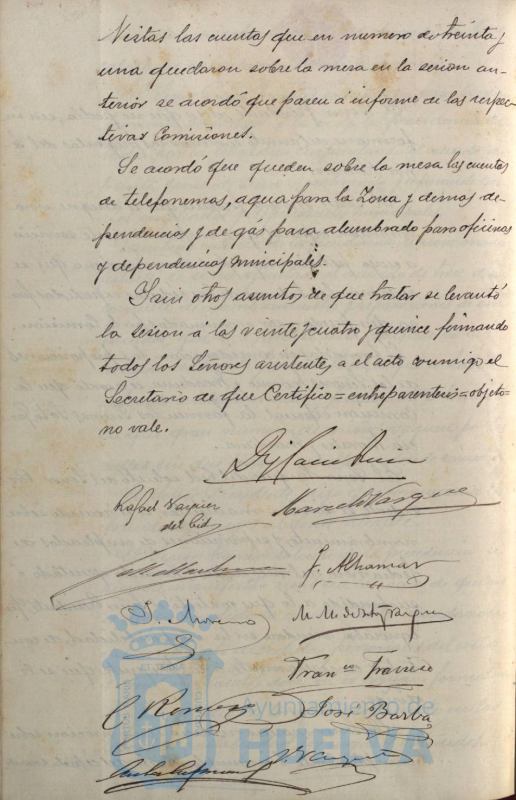 Vistas las cuentas que en numero de treinta y
una quedaron sobre la mesa en la sesion an-
terior se acordó que pasen á informe de las respec-
tivas Comisiones.
Se acordó que queden sobre la mesa las cuentas
de telefonemas, agua para la Zona y demas de-
pendencias y de gás para alumbrado para oficinas
y dependencias municipales.
Y sin otros asuntos de que tratar se levantó
la sesion á las veinte y cuatro y quince firmando
todos los Señores asistentes a el acto conmigo el
Secretario de que Certifico = entreparentesis = objeto =
no vale.
Rafael Vazquez
del Cid
J. Alhamar
J. Moreno
Franco
José Barba
Ayuntamiento de
HUELVA